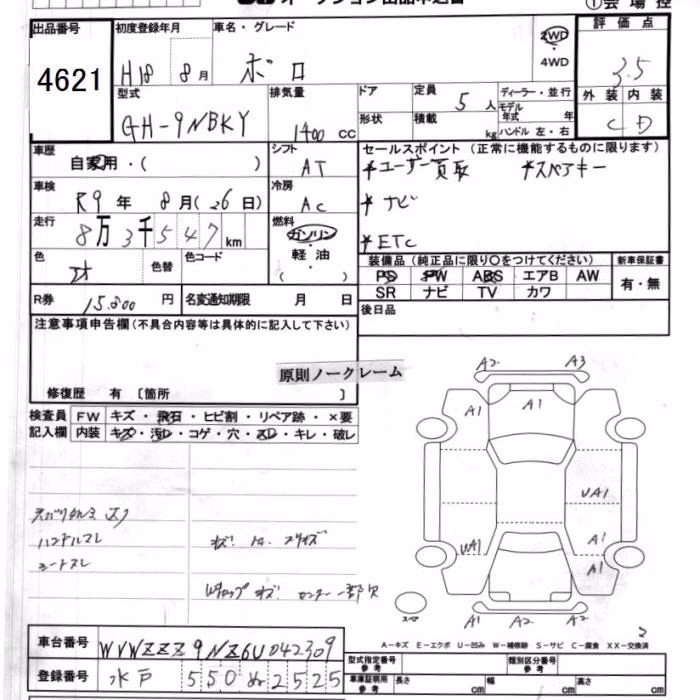 出品番号 初度登録年月 車名・グレード 2WD ・ 4WD 評価点
4621 H18 8月 ポロ 3.5
型式 排気量 ドア 定員 5人 ディーラー・並行 外装 内装
GH-9NBKY 1400 cc 形状 積載 kg モデル年式 年 ハンドル 左・右 C D
車歴 自家用・( ) シフト AT セールスポイント (正常に機能するものに限ります)
*ユーザー買取 *スペアキー
車検 R9年 8月(26日) 冷房 AC *ナビ
走行 8万3千547km 燃料 ガソリン ・ 軽油 ( ) *ETC
色 色替 色コード 装備品 (純正品に限り○をつけてください) 新車保証書
PS PW ABS エアB AW 有・無
SR ナビ TV カワ
R券 15,800円 名変通知期限 月 日 後日品
注意事項申告欄(不具合内容等は具体的に記入して下さい)
原則ノークレーム
修復歴 有 〔箇所 〕
検査員 FW キズ・飛石・ヒビ割・リペア跡・×要
記入欄 内装 キズ・汚レ・コゲ・穴・スレ・キレ・破レ
A2 A3
A1 A1
UA1
UA1 A1
A1
ハンドルスレ
シートスレ
スペア A1 A2 A2
A-キズ E-エクボ U-凹み W-補修跡 S-サビ C-腐食 XX-交換済
車台番号 WVWZZZ9NZ6U042309
登録番号 水戸 550 2525
型式指定番号 参考 類別区分番号 参考
車庫証明用 参考 長さ cm 幅 cm 高さ cm